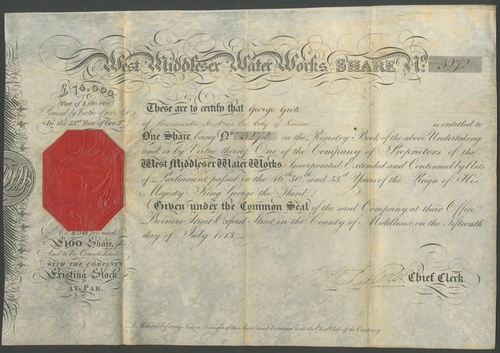 West Middlesex Water Works SHARE No. 5272
£74,000
Part of £160,000
Raised by Virtue of an Act
In the 53rd Year of Geo. 3d
These are to certify that George Grote
of Threadneedle Street in the City of London is entitled to
One Share being No. 5272 in the Registry Book of the above Undertaking
and is by Virtue thereof One of the Company of Proprietors of the
West Middlesex Water Works Incorporated Extended and Continued by Acts
of Parliament passed in the 46th 50th and 53d Years of the Reign of His
Majesty King George the Third
Given under the Common Seal of the said Company, at their Office
Berners Street, Oxford Street, in the County of Middlesex, on the Fifteenth
day of July 1813.
for each
£100 Share,
And to be Consolidated
WITH THE COMPANY'S
Existing Stock
AT PAR.
Chief Clerk
A Memorial of every Sale or Transfer of this Share must be entered with the Chief Clerk of the Company